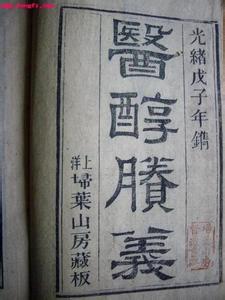 光緒戊子年鐫
醫醇賸義
上洋
埽葉山房藏板